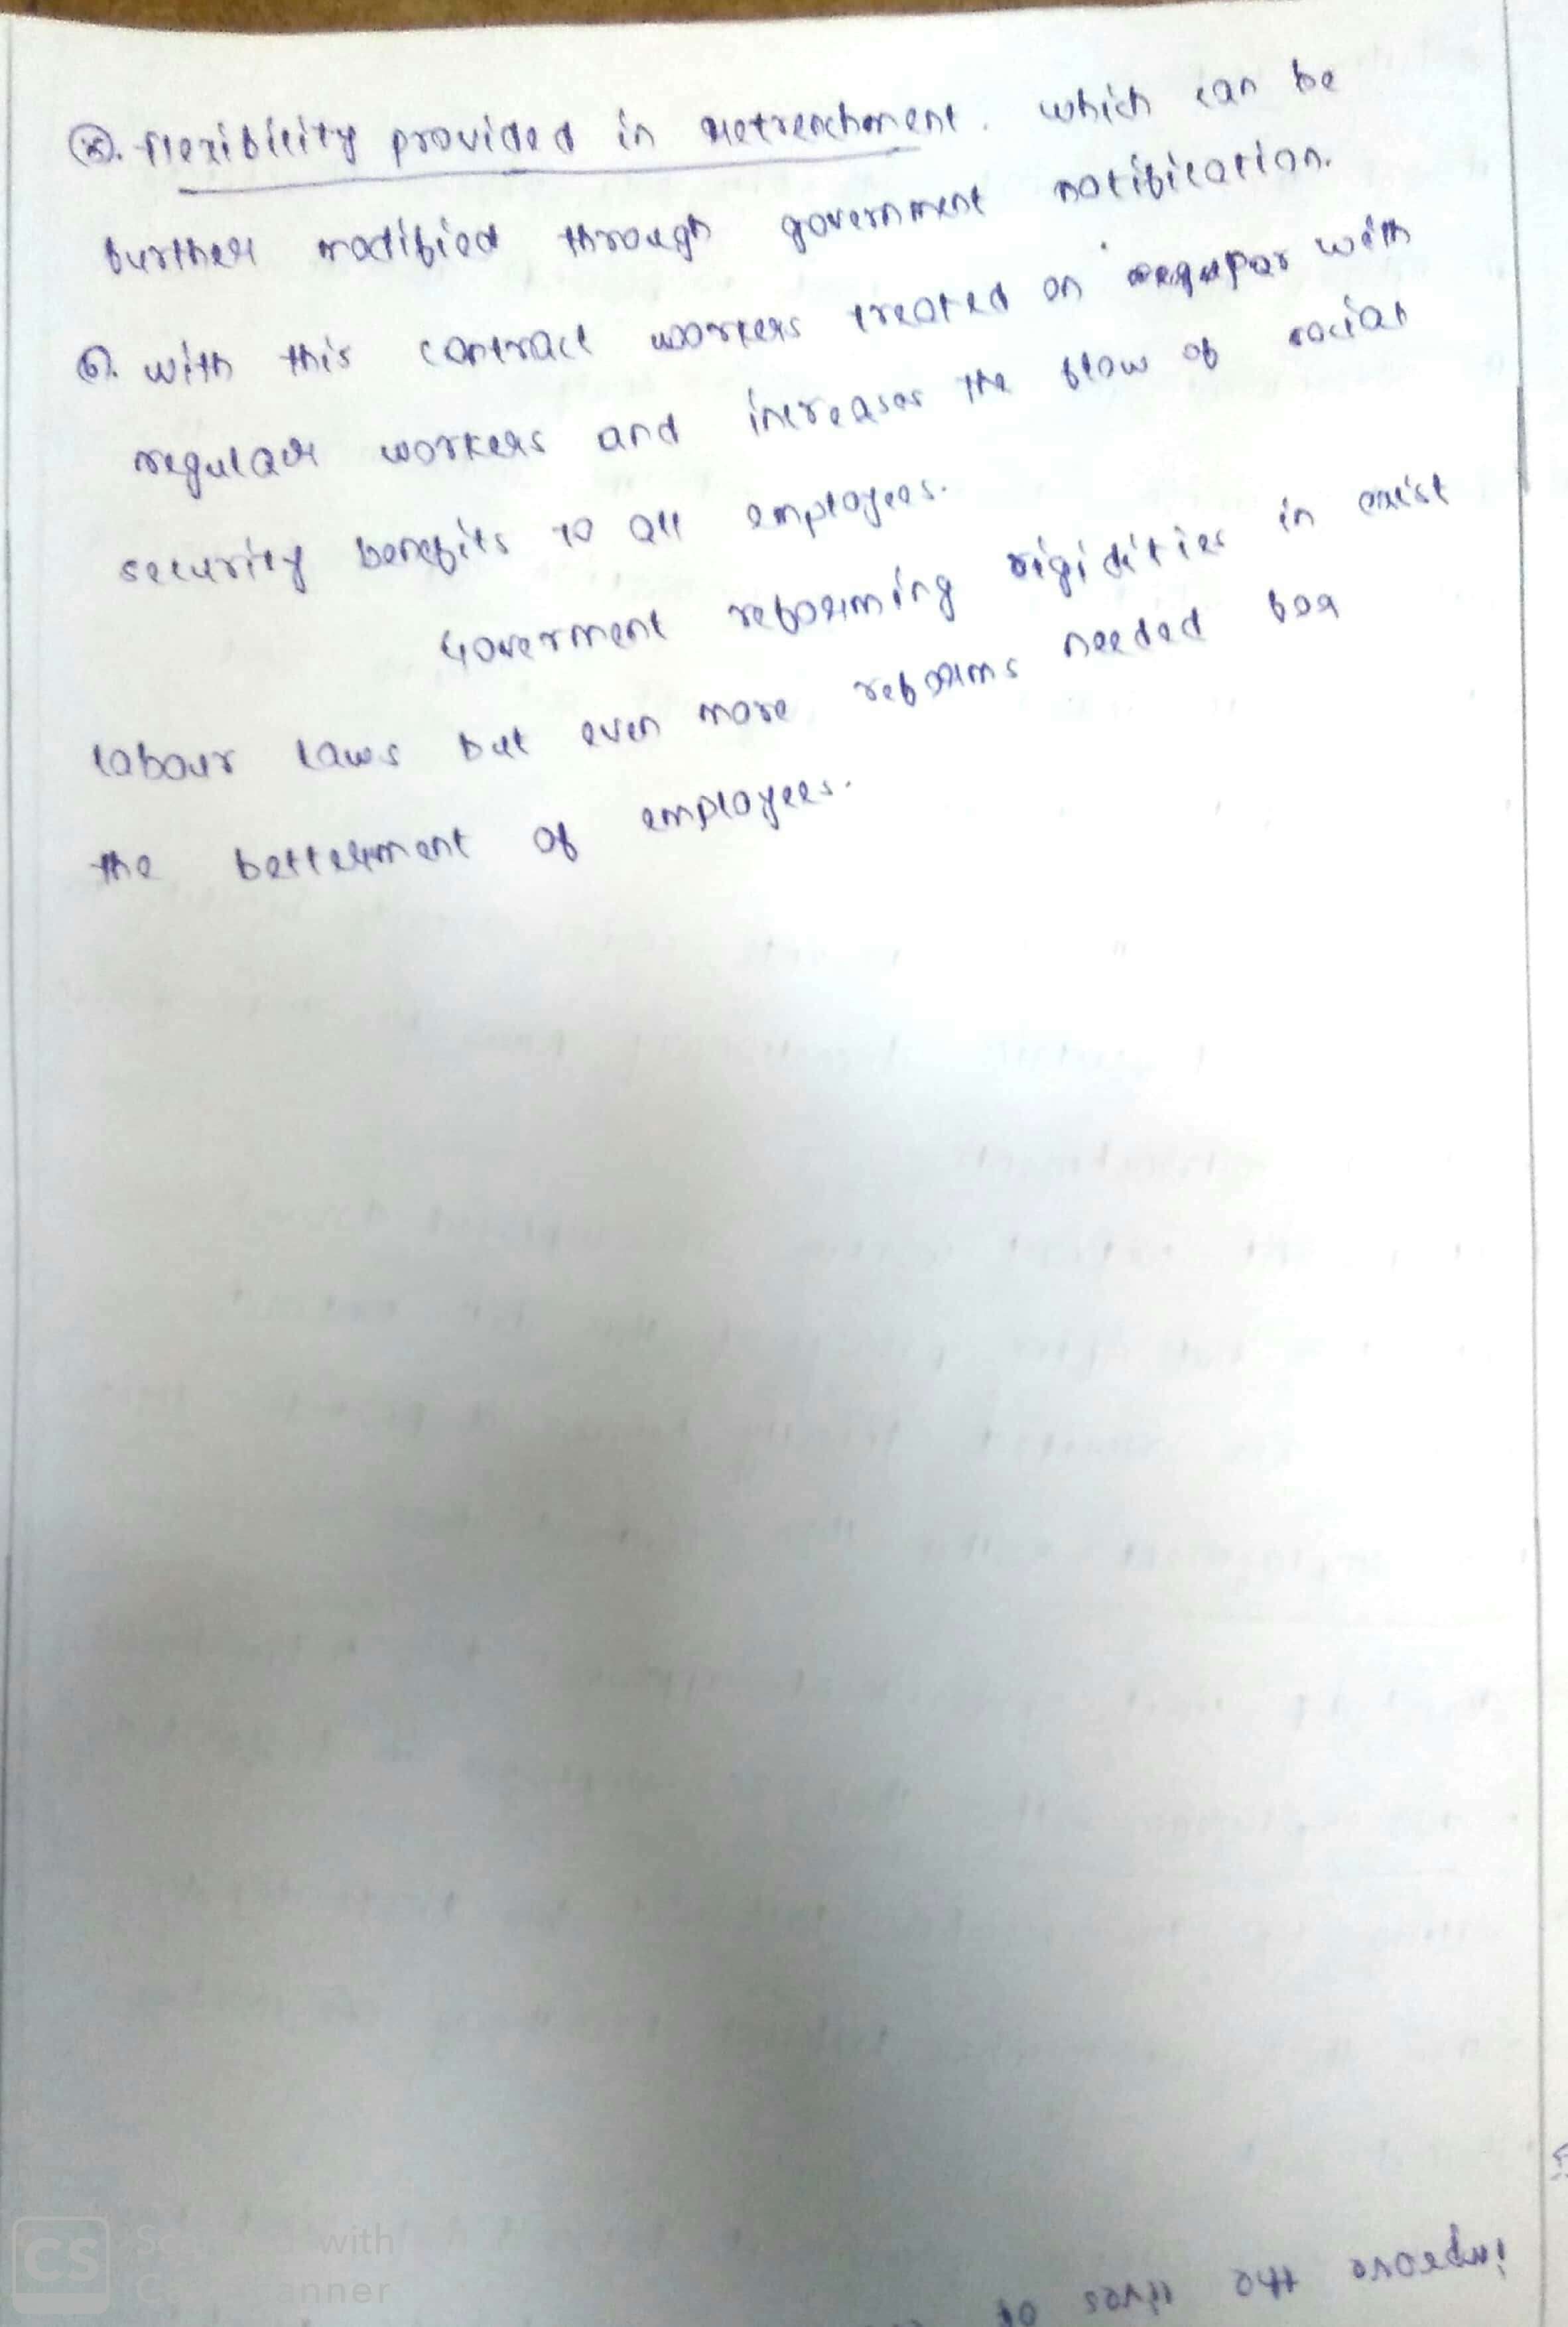 flexibility provided in retrenchment. which can be
further modified through government notification.
with this contract workers treated on par with
regular workers and increases the flow of social
security benefits to all employees.
Goverment reforming rigidities in exist
labour laws but even more reforms needed for
the betterment of employees.
improve the lives of
CS
with